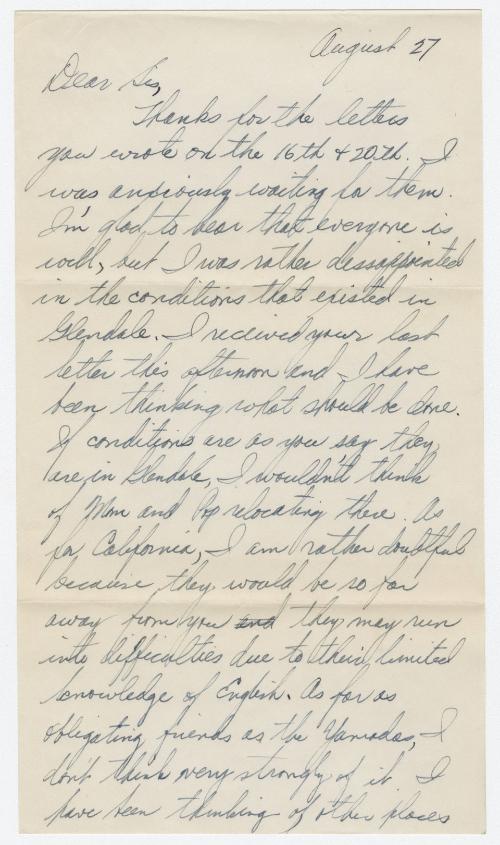 August 27
Dear Sis,
Thanks for the letters
you wrote on the 16th & 20th. I
was anxiously waiting for them.
I'm glad to hear that everyone is
well, but I was rather dissappointed
in the conditions that existed in
Glendale. I received your last
letter this afternoon and I have
been thinking what should be done.
If conditions are as you say they
are in Glendale, I wouldn't think
of Mom and Pop relocating there. As
for California, I am rather doubtful
because they would be so far
away from you and they may run
into difficulties due to their limited
knowledge of English. As far as
obligating friends as the Yamadas, I
don't think very strongly of it. I
have been thinking of other places